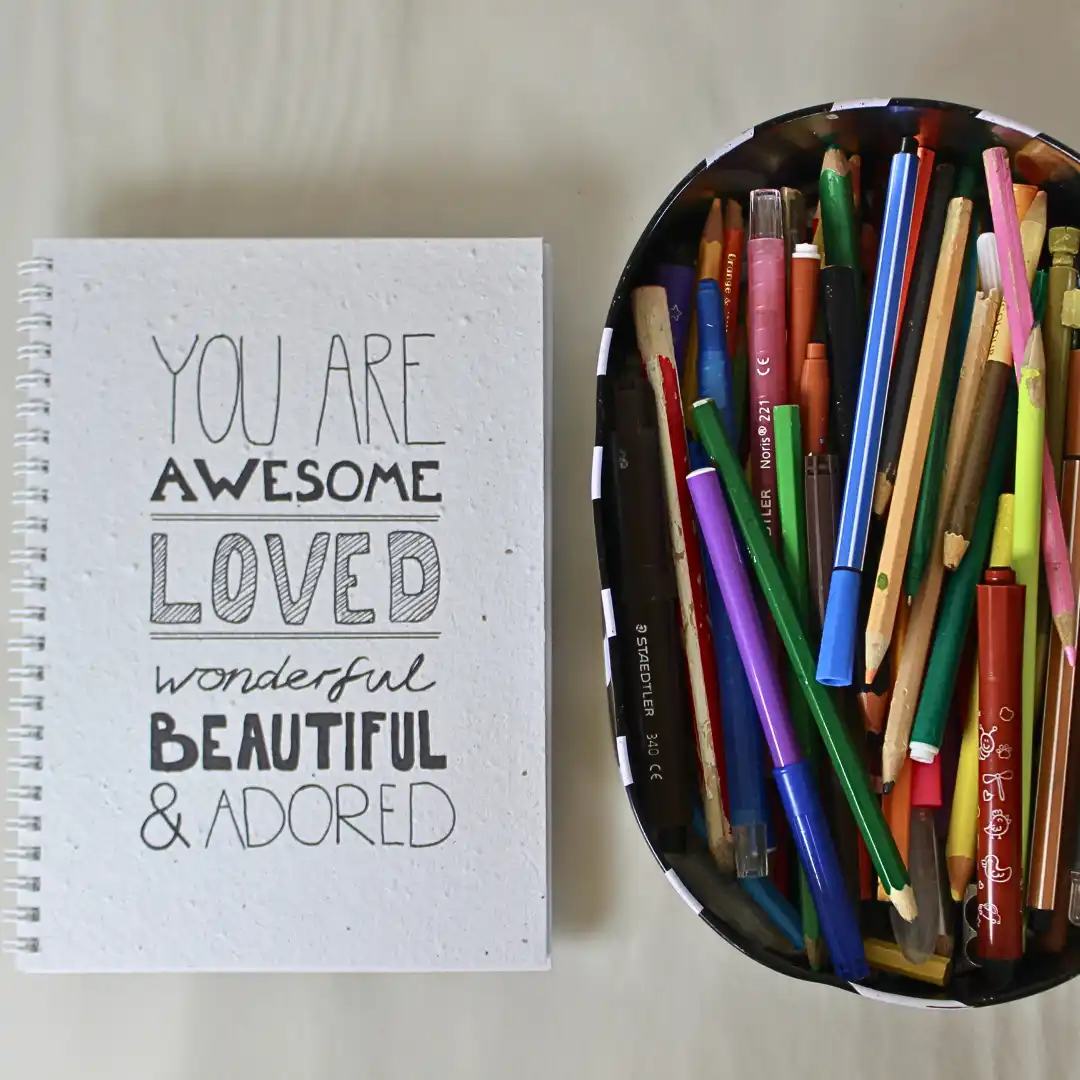 YOU ARE
AWESOME
LOVED
wonderful
BEAUTIFUL
& ADORED
STAEDTLER 340 CE
Noris® 221 CE
Orange &